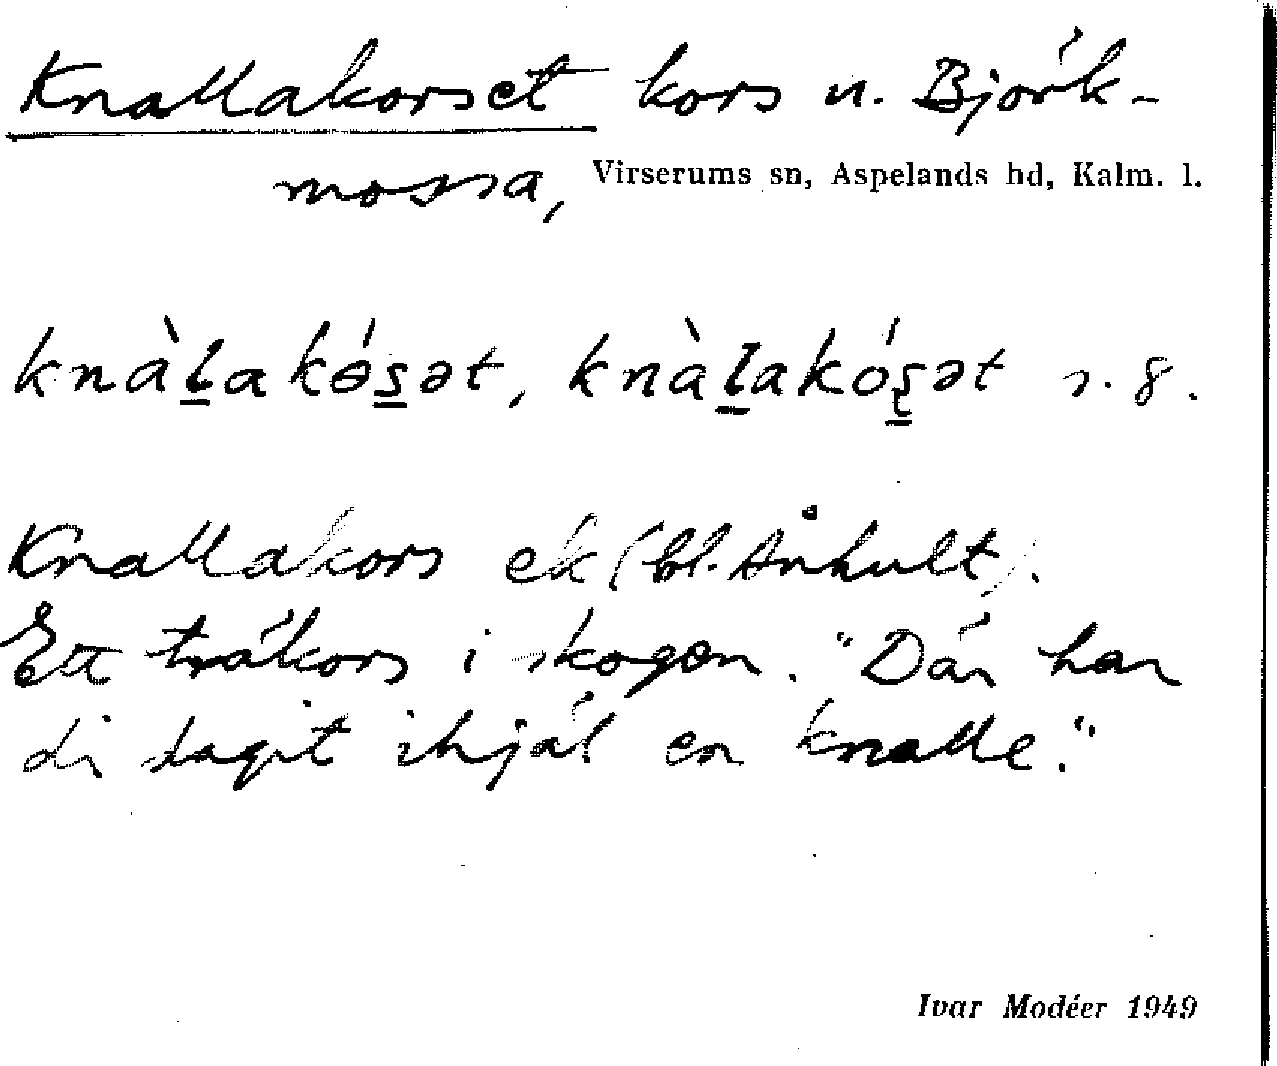 Knallakorset kors n. Björk-
mossa, Virserums sn, Aspelands hd, Kalm. l.
knàḻakɵ́s̱ət, knàḻakós̱ət s. 8.
Knallakors ek (bl. Ånhult).
Ett träkors i skogen. "Där har
di tagit ihjäl en knalle."
Ivar Modéer 1949